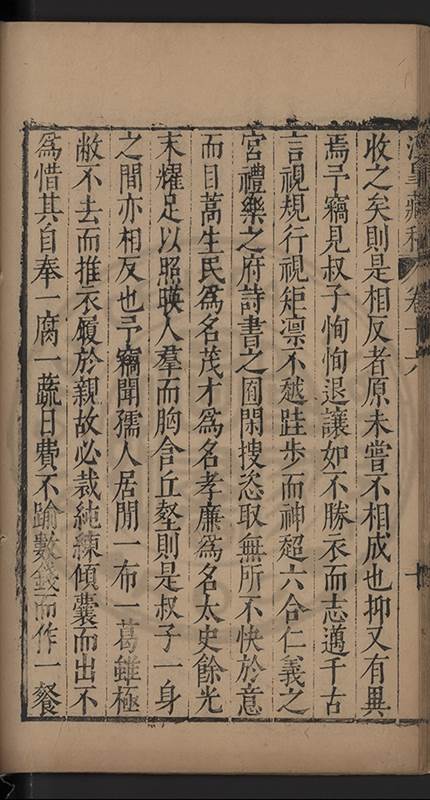 藏稿 卷十六 十
收之矣則是相反者原未嘗不相成也抑又有異
焉予竊見叔子恂恂退讓如不勝衣而志邁千古
言視規行視矩凛不越跬步而神超六合仁義之
宮禮樂之府詩書之囿閑搜恣取無所不快於意
而目蒿生民爲名茂才爲名孝廉爲名太史餘光
末燿足以照暎人羣而胸含丘壑則是叔子一身
之間亦相反也予竊聞孺人居閒一布一葛雖極
敝不去而推衣履於親故必裁純練傾囊而出不
爲惜其自奉一腐一蔬日費不踰數錢而作一餐